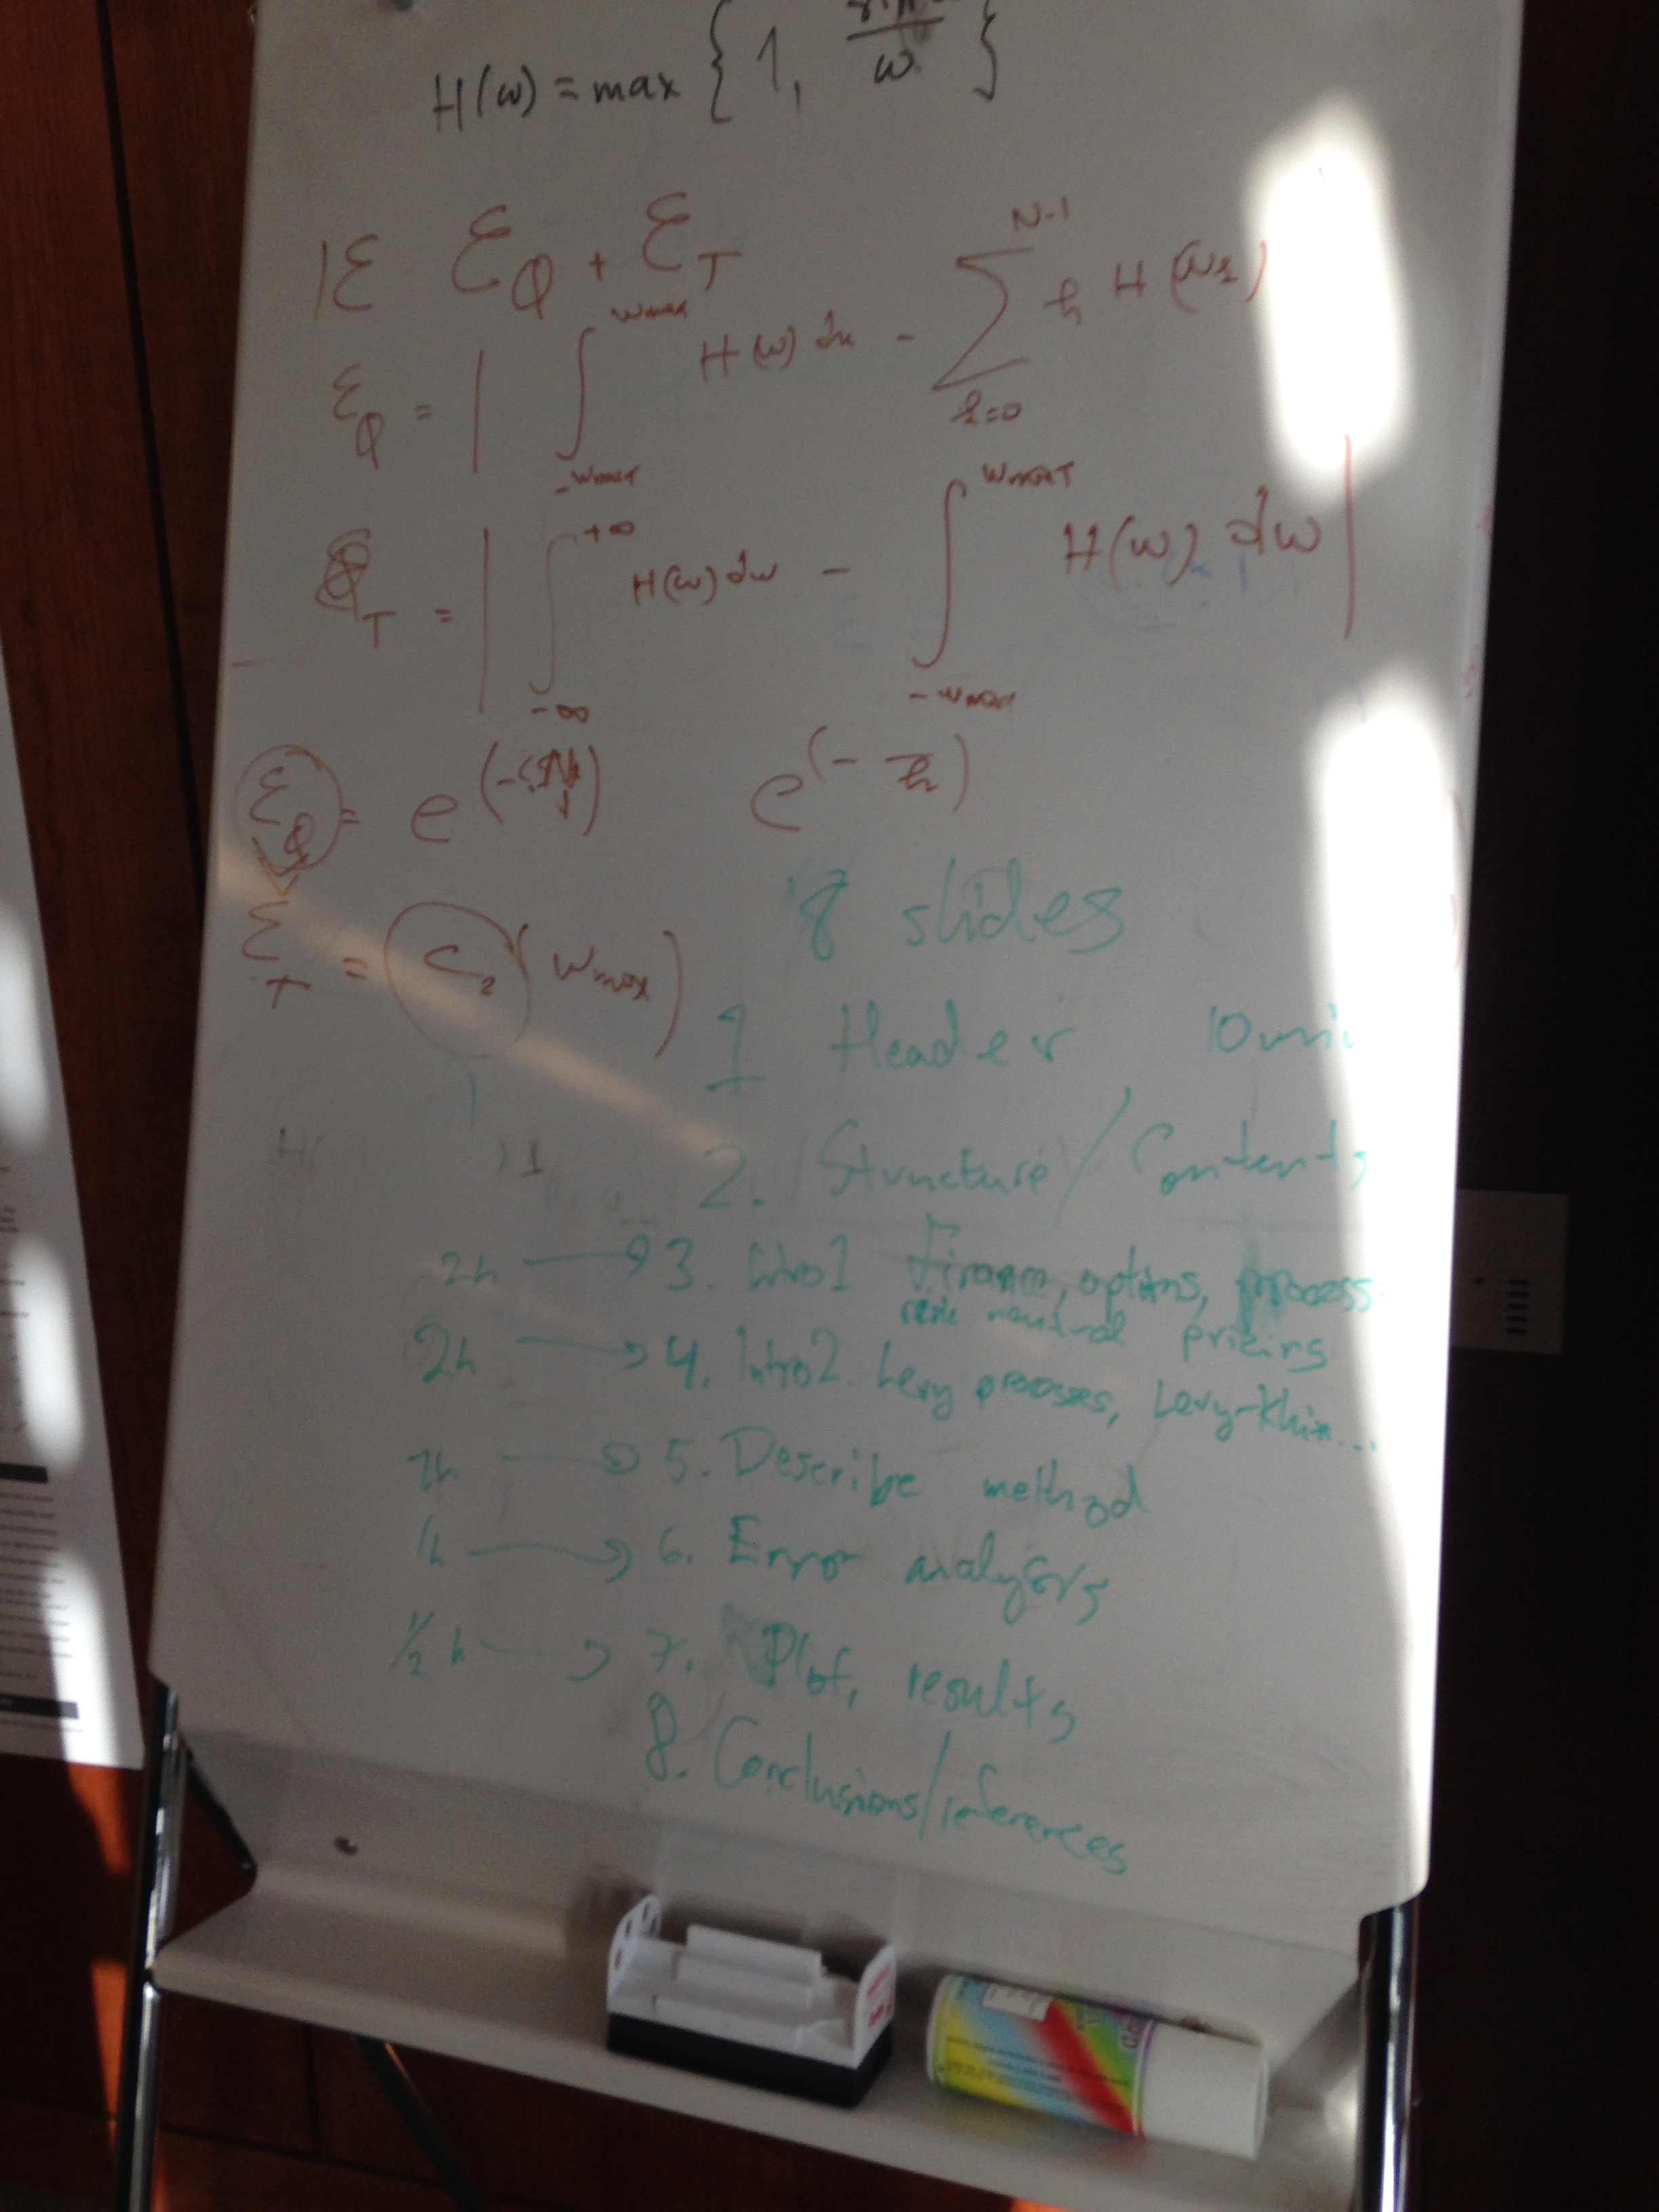 H(ω) = max { 1, ω }
|ε ε_Q + ε_T
ε_Q = | ∫_{-ωmax}^{ωmax} H(ω) dω - ∑_{k=0}^{N-1} h H(ωk)
ε_T = | ∫_{-∞}^{+∞} H(ω) dω - ∫_{-ωmax}^{ωmax} H(ω) dω |
ε_Q = e^(- ) e^(- /h)
ε_T = C_2 ( ωmax )
8 slides
1 Header 10 min
2. Structure / Contents
2h → 3. Intro1 Finance, options, process
risk neutral pricing
2h → 4. Intro2. Levy processes, Levy-Khin...
5. Describe method
1h → 6. Error analysis
½ h → 7. Plot, results
8. Conclusions/references